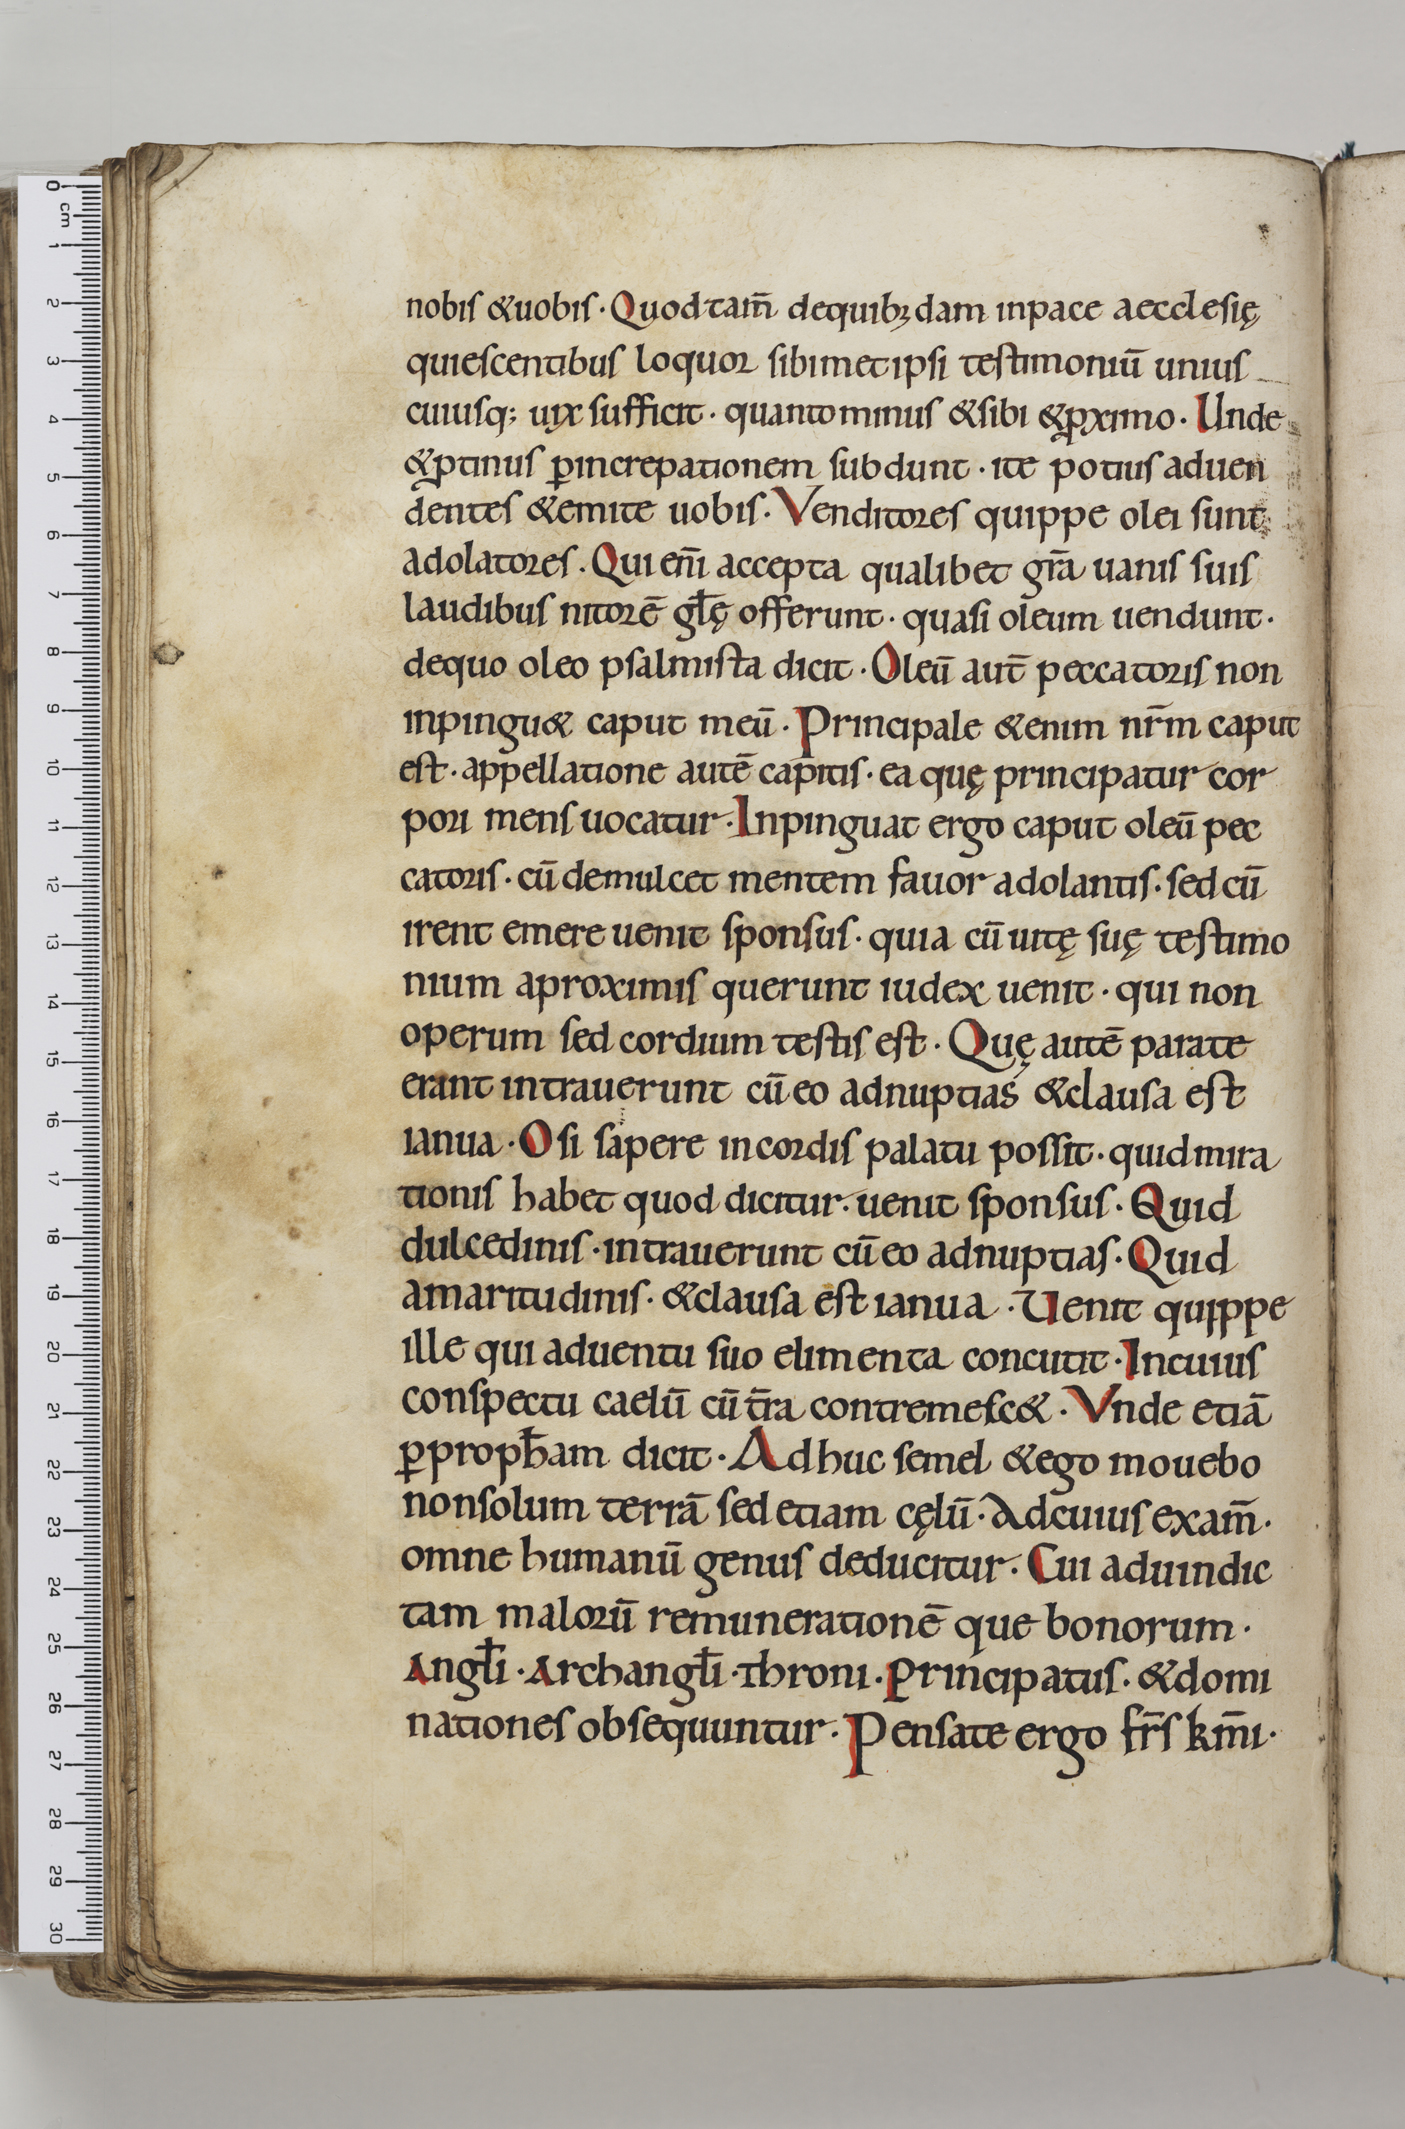 nobis &uobis · Quodtam̄ dequibꝫdam inpace aecclesię
quiescentibus loquor sibimetipsi testimoniū unius
cuiusq; uix sufficit · quantominus &sibi &ꝓximo · Unde
&ꝓtinus ꝑincrepationem subdunt · ite potius aduen
dentes &emite uobis · Venditores quippe olei sunt
adolatores . Qui eni̅ accepta qualibet gr̄a uanis suis
laudibus nitorē gl̄ę offerunt · quasi oleum uendunt ·
dequo oleo psalmista dicit · Oleū aut̄ peccatoris non
inpingu& caput meū · Principale &enim nr̄m caput
est · appellatione autē capitis · ea quę principatur cor
pori mens uocatur · Inpinguat ergo caput oleū pec
catoris · cū demulcet mentem fauor adolantis · sed cū
irent emere uenit sponsus · quia cū uitę suę testimo
nium aproximis querunt iudex uenit · qui non
operum sed cordium testis est · Quę autē parate
erant intrauerunt cū eo adnuptias &clausa est
ianua · Osi sapere incordis palatu possit · quidmira
tionis habet quod dicitur · uenit sponsus · Quid
dulcedinis · intrauerunt cū eo adnuptias · Quid
amaritudinis · &clausa est ianua · Uenit quippe
ille qui aduentu suo elimenta concutit · Incuius
conspectu caelū cū t̄ra contremesc& · Vnde etiā
ꝑproph̄am dicit · Adhuc semel &ego mouebo
nonsolum terrā sed etiam cęlū · Adcuius exam̄ ·
omne humanū genus deducitur · Cui aduindic
tam malorū remunerationē que bonorum ·
Angl̄i · Archangl̄i · Throni · Principatus · &domi
nationes obsequuntur · Pensate ergo fr̄s km̄i ·
0
cm
1
2
3
4
5
6
7
8
9
10
11
12
13
14
15
16
17
18
19
20
21
22
23
24
25
26
27
28
29
30